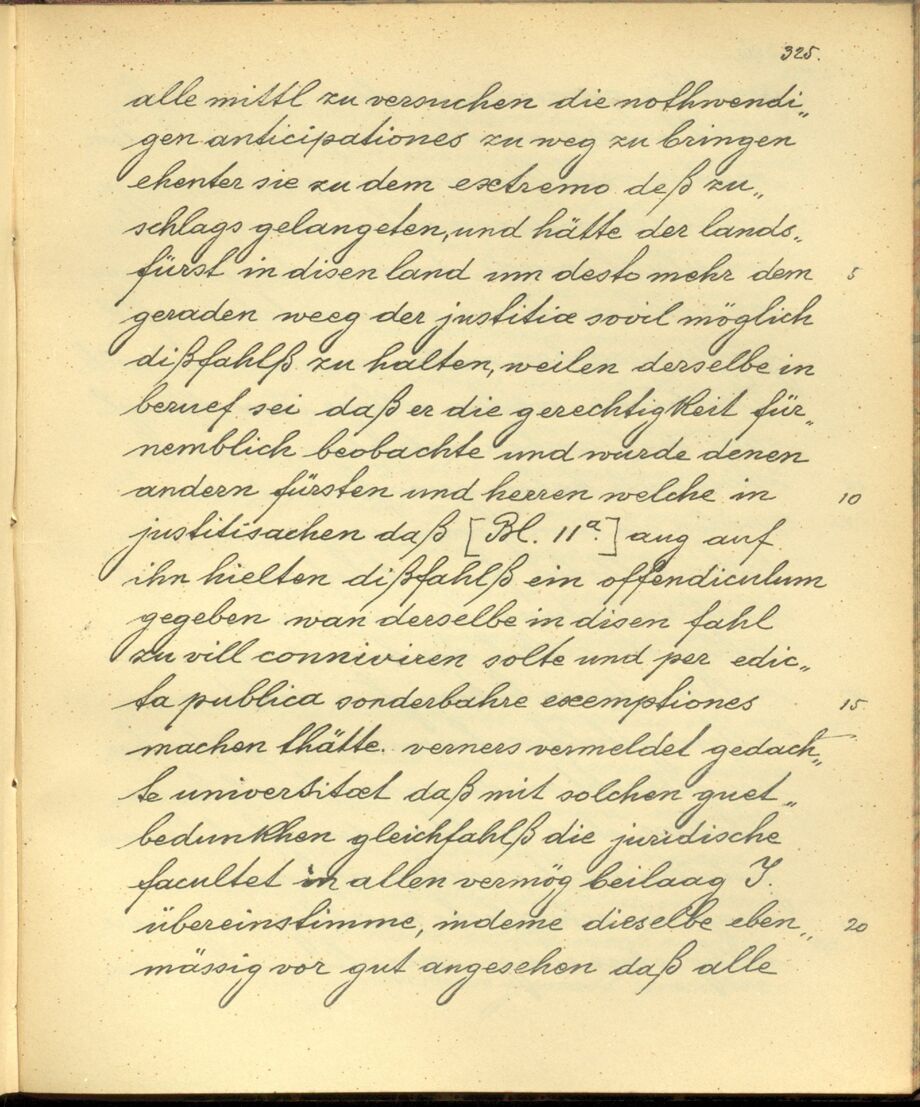 325.
alle mittl zu versuchen die nothwendi„
gen anticipationes zu weg zu bringen
ehenter sie zu dem extremo deß zu„
schlags gelangeten, und hätte der lands„
fürst in disen land um desto mehr dem 5
geraden weeg der justitiæ sovil möglich
dißfahlß zu halten, weilen derselbe in
beruef sei daß er die gerechtigkeit für„
nemblich beobachte und wurde denen
andern fürsten und herren welche in 10
justitisachen daß [Bl. 11a.] aug auf
ihn hielten dißfahlß ein offendiculum
gegeben wan derselbe in disen fahl
zu vill conniviren solte und per edic„
ta publica sonderbahre exemptiones 15
machen thätte. verners vermeldet gedach„
te universitæt daß mit solchen guet„
bedunkhen gleichfahlß die juridische
facultet in allen vermög beilaag I.
übereinstimme, indeme dieselbe eben„ 20
mässig vor gut angesehen daß alle